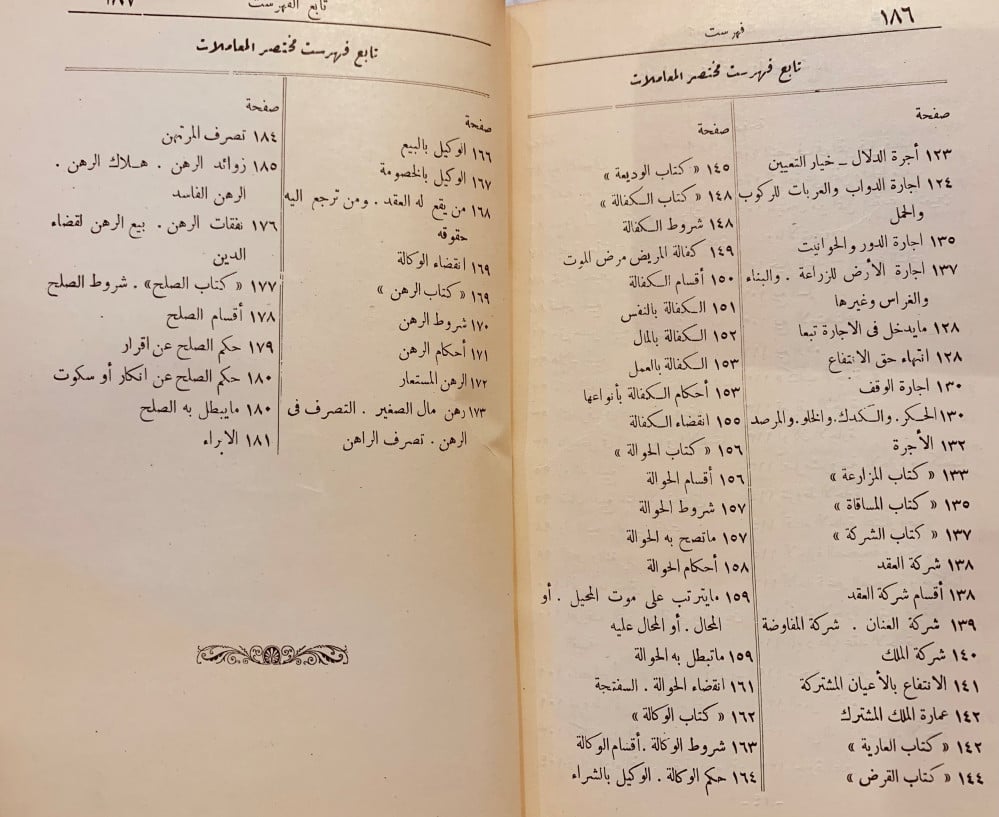 ١٨٦
فهرست
تابع فهرست مختصر المعاملات
صفحة
١٢٣ أجرة الدلال ــ خيار التعيين
١٢٤ اجارة الدواب والعربات للركوب
والحمل
١٣٥ اجارة الدور والحوانيت
١٣٧ اجارة الأرض للزراعة . والبناء
والغراس وغيرها
١٢٨ مايدخل فى الاجارة تبعا
١٢٨ انتهاء حق الانتفاع
١٣٠ اجارة الوقف
١٣٠ الحكر . والكدك . والخلو . والمرصد
١٣٢ الأجرة
١٣٣ « كتاب المزارعة »
١٣٥ « كتاب المساقاة »
١٣٧ « كتاب الشركة »
١٣٨ شركة العقد
١٣٨ أقسام شركة العقد
١٣٩ شركة العنان . شركة المفاوضة
١٤٠ شركة الملك
١٤١ الانتفاع بالأعيان المشتركة
١٤٢ عمارة الملك المشترك
١٤٢ « كتاب العارية »
١٤٤ « كتاب القرض »
صفحة
١٤٥ « كتاب الوديعة »
١٤٨ « كتاب الكفالة »
١٤٨ شروط الكفالة
١٤٩ كفالة المريض مرض الموت
١٥٠ أقسام الكفالة
١٥١ الكفالة بالنفس
١٥٢ الكفالة بالمال
١٥٣ الكفالة بالعمل
١٥٣ أحكام الكفالة بأنواعها
١٥٥ انقضاء الكفالة
١٥٦ « كتاب الحوالة »
١٥٦ أقسام الحوالة
١٥٧ شروط الحوالة
١٥٧ ماتصح به الحوالة
١٥٨ أحكام الحوالة
١٥٩ مايترتب على موت المحيل . أو
المحال . أو المحال عليه
١٥٩ ماتبطل به الحوالة
١٦١ انقضاء الحوالة . السفتجة
١٦٢ « كتاب الوكالة »
١٦٣ شروط الوكالة . أقسام الوكالة
١٦٤ حكم الوكالة . الوكيل بالشراء
تابع الفهرست
١٨٧
تابع فهرست مختصر المعاملات
صفحة
١٦٦ الوكيل بالبيع
١٦٧ الوكيل بالخصومة
١٦٨ من يقع له العقد . ومن ترجع اليه
حقوقه
١٦٩ انقضاء الوكالة
١٦٩ « كتاب الرهن »
١٧٠ شروط الرهن
١٧١ أحكام الرهن
١٧٢ الرهن المستعار
١٧٣ رهن مال الصغير . التصرف فى
الرهن . تصرف الراهن
صفحة
١٨٤ تصرف المرتهن
١٨٥ زوائد الرهن . هلاك الرهن .
الرهن الفاسد
١٧٦ نفقات الرهن . بيع الرهن لقضاء
الدين
١٧٧ « كتاب الصلح » . شروط الصلح
١٧٨ أقسام الصلح
١٧٩ حكم الصلح عن اقرار
١٨٠ حكم الصلح عن انكار أو سكوت
١٨٠ مايبطل به الصلح
١٨١ الابراء